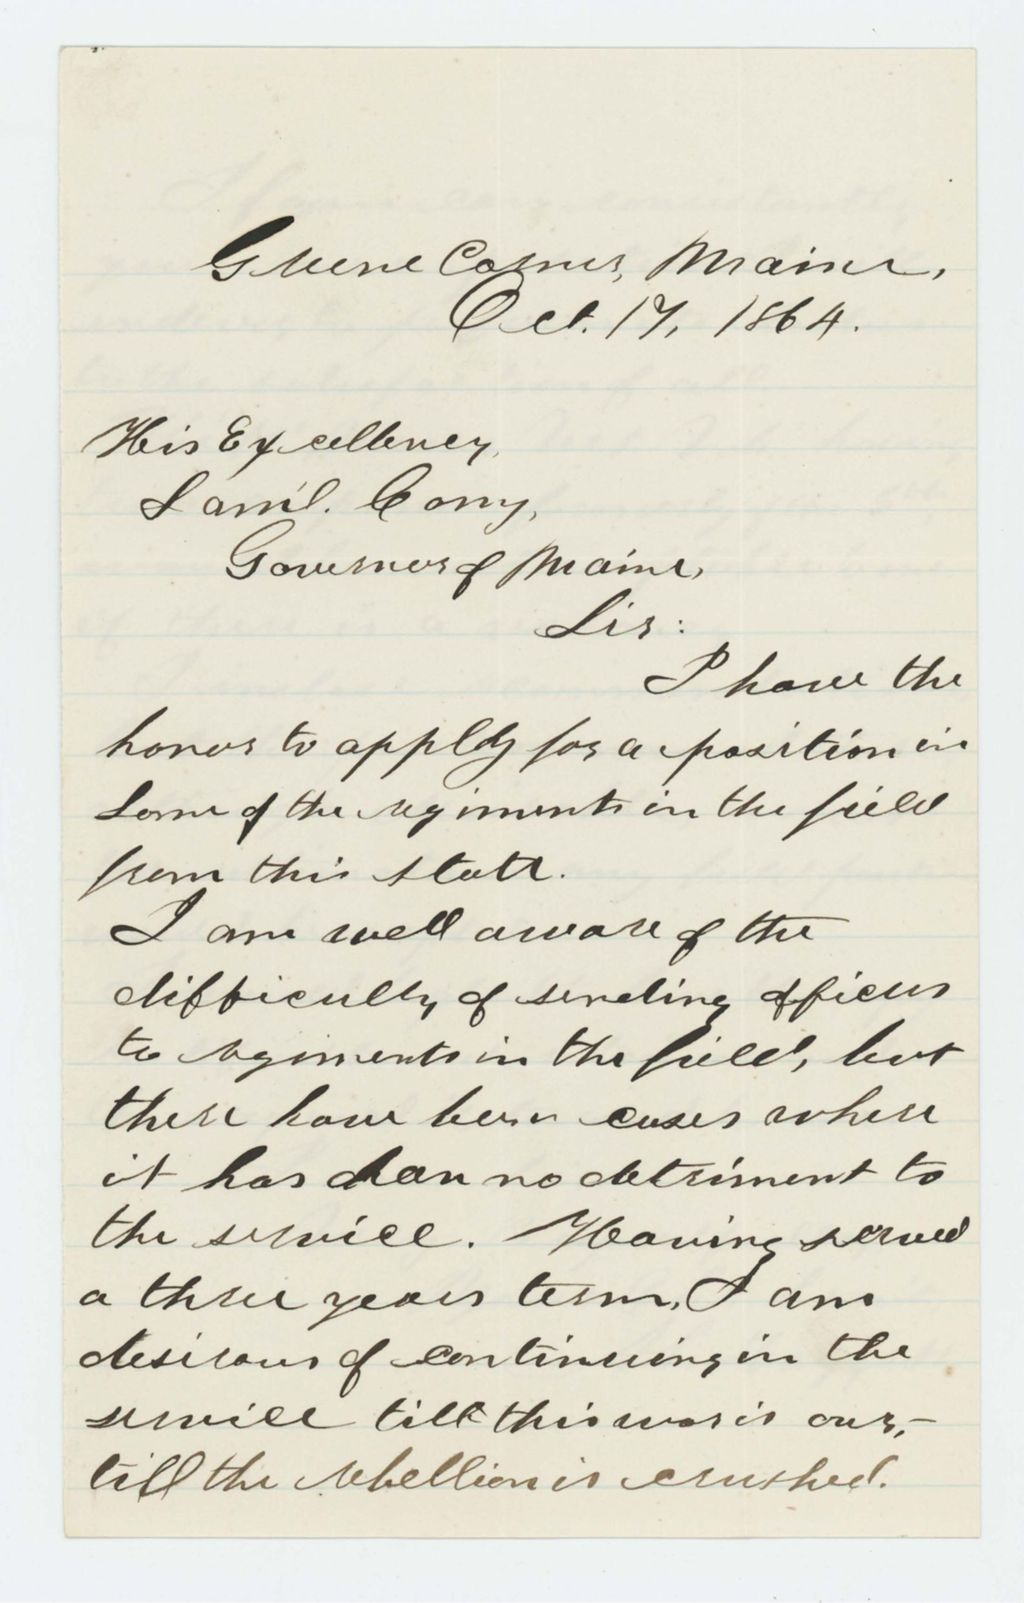 Greene Corner, Maine,
Oct. 17, 1864.
His Excellency,
Sam'l. Cony,
Governor of Maine,
Sir:
I have the
honor to apply for a position in
some of the regiments in the field
from this state.
I am well aware of the
difficulty of sending officers
to regiments in the field, but
there have been cases where
it has done no detriment to
the service. Having served
a three years term, I am
desirous of continuing in the
service till this war is over,—
till the rebellion is crushed.